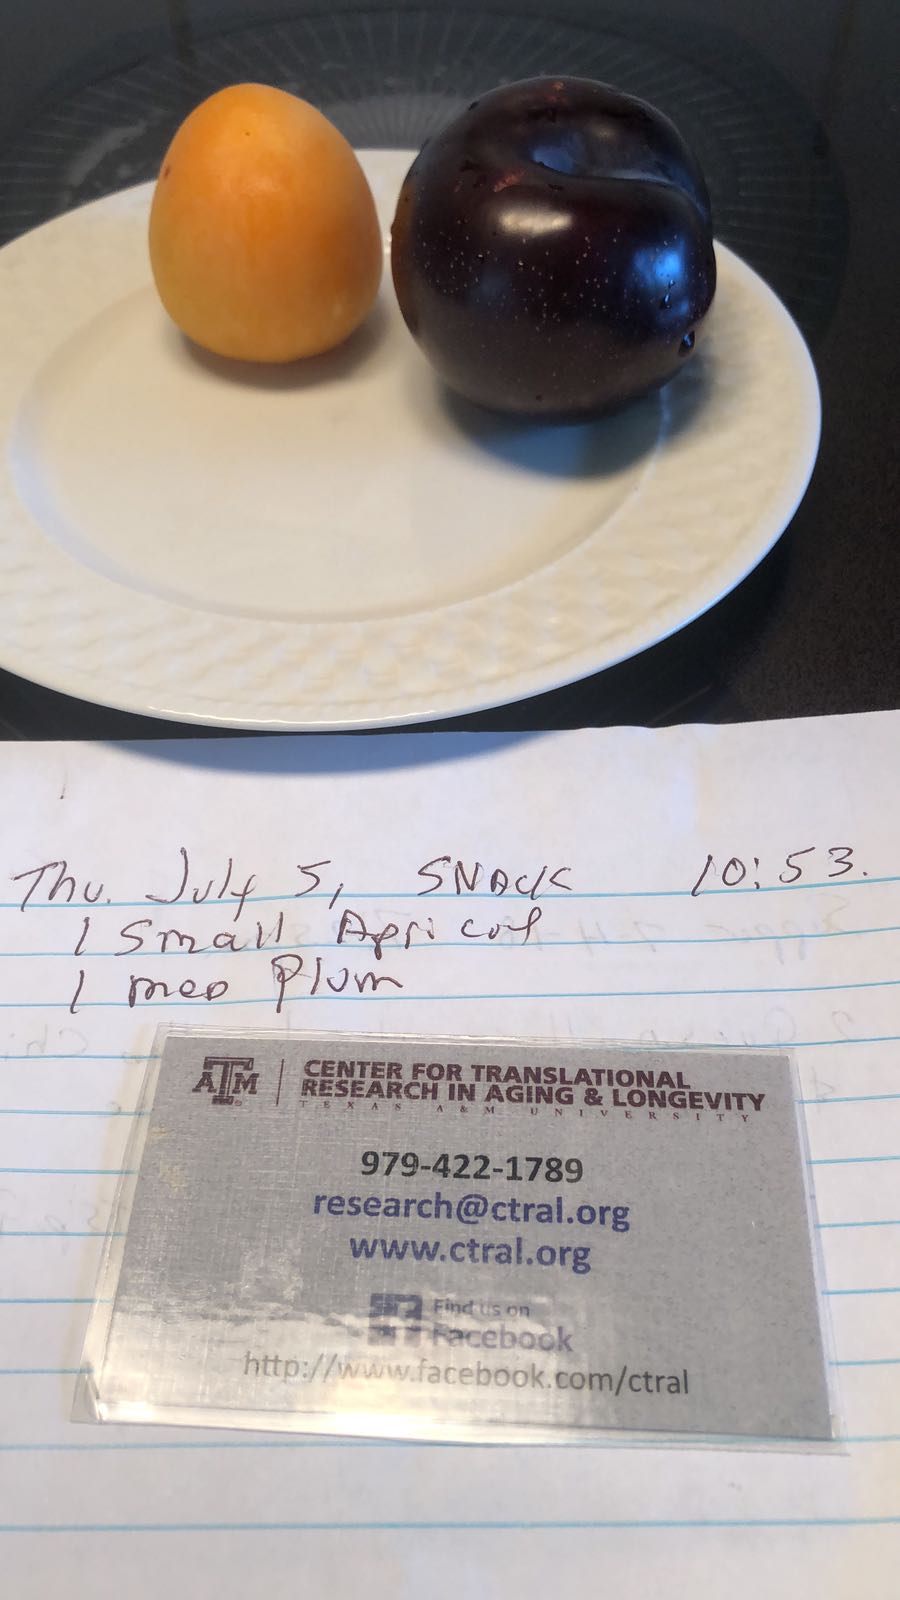 Thu. July 5, SNACK 10:53.
1 Small Apricot
1 med Plum
ATM
CENTER FOR TRANSLATIONAL
RESEARCH IN AGING & LONGEVITY
TEXAS A&M UNIVERSITY
979-422-1789
research@ctral.org
www.ctral.org
Find us on
Facebook
http://www.facebook.com/ctral